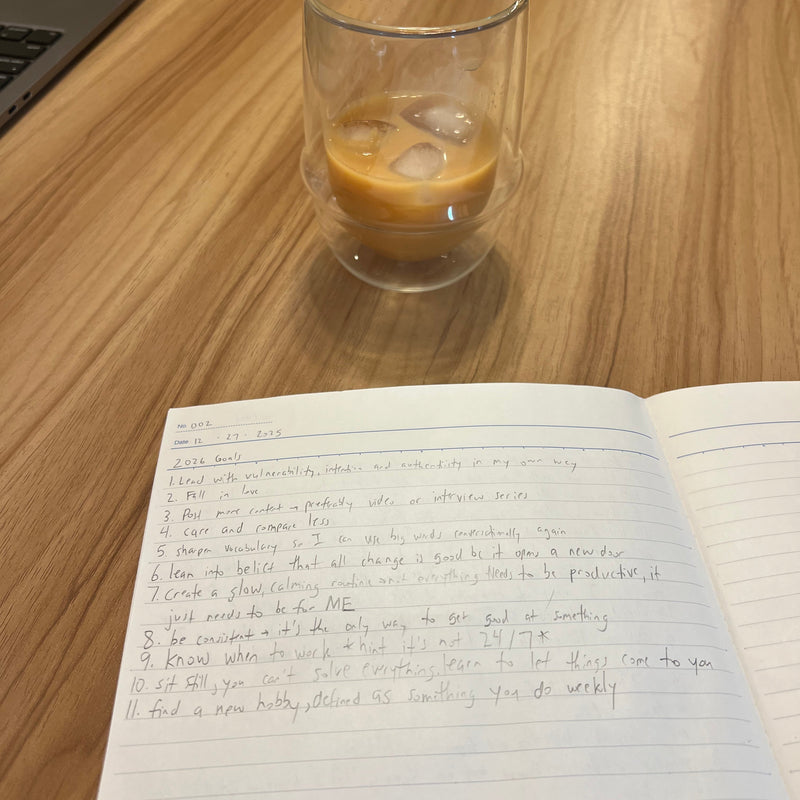 No. 002
Date 12 · 27 · 2025
2026 Goals
1. Lead with vulnerability, intention and authenticity in my own way
2. Fall in love
3. Post more content → preferably video or interview series
4. care and compare less
5. sharpen vocabulary so I can use big words conversationally again
6. lean into belief that all change is good bc it opens a new door
7. Create a slow, calming routine → not everything needs to be productive, it
just needs to be for ME
8. be consistent → it's the only way to get good at something
9. know when to work *hint it's not 24/7*
10. sit still, you can't solve everything. learn to let things come to you
11. find a new hobby, defined as something you do weekly